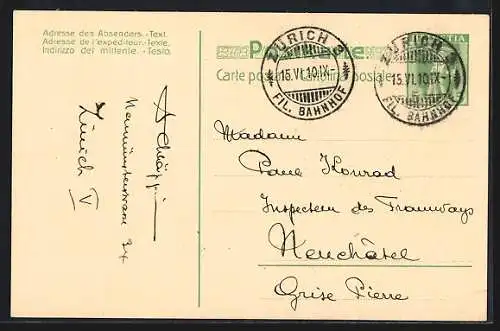 Adresse des Absenders. - Text.
Adresse de l'expéditeur. - Texte.
Indirizzo del mittente. - Testo.
Carte postale. Cartolina postale.
ZÜRICH
15.VI.10.IX-
FIL. BAHNHOF
ZÜRICH
15.VI.10.IX-
FIL. BAHNHOF
A Schläppi
Neumünsterstrasse 34
Zürich V
Madame
Paul Konrad
Inspecteur des Tramways
Neuchâtel
Grise Pierre